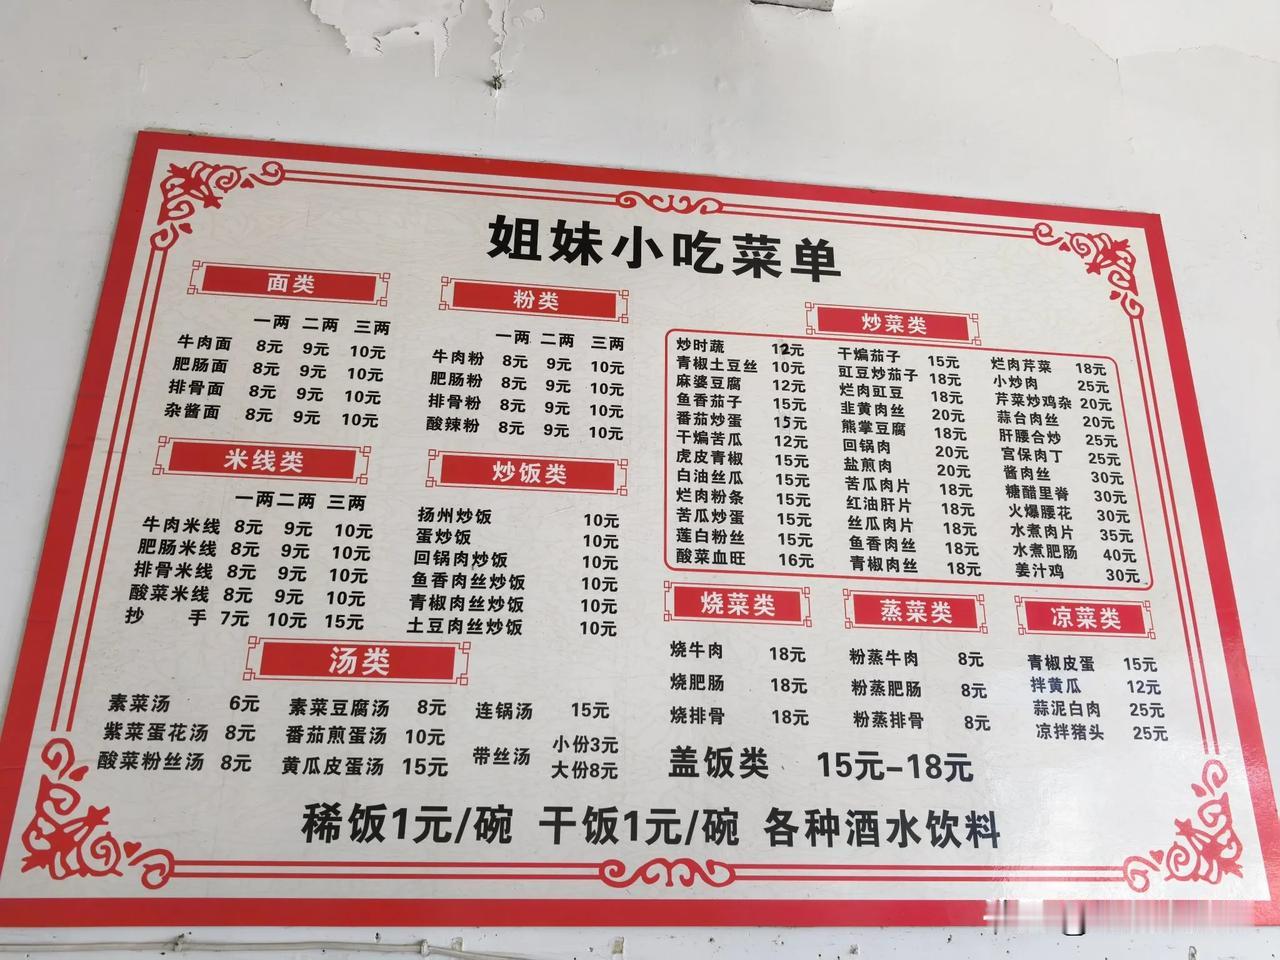 姐妹小吃菜单
面类
一两 二两 三两
牛肉面 8元 9元 10元
肥肠面 8元 9元 10元
排骨面 8元 9元 10元
杂酱面 8元 9元 10元
粉类
一两 二两 三两
牛肉粉 8元 9元 10元
肥肠粉 8元 9元 10元
排骨粉 8元 9元 10元
酸辣粉 8元 9元 10元
米线类
一两 二两 三两
牛肉米线 8元 9元 10元
肥肠米线 8元 9元 10元
排骨米线 8元 9元 10元
酸菜米线 8元 9元 10元
抄手 7元 10元 15元
炒饭类
扬州炒饭 10元
蛋炒饭 10元
回锅肉炒饭 10元
鱼香肉丝炒饭 10元
青椒肉丝炒饭 10元
土豆肉丝炒饭 10元
炒菜类
炒时蔬 12元
青椒土豆丝 10元
麻婆豆腐 12元
鱼香茄子 15元
番茄炒蛋 15元
干煸苦瓜 12元
虎皮青椒 15元
白油丝瓜 15元
烂肉粉条 15元
苦瓜炒蛋 15元
莲白粉丝 15元
酸菜血旺 16元
干煸茄子 15元
豇豆炒茄子 18元
烂肉豇豆 18元
韭黄肉丝 20元
熊掌豆腐 18元
回锅肉 20元
盐煎肉 20元
苦瓜肉片 18元
红油肝片 18元
丝瓜肉片 18元
鱼香肉丝 18元
青椒肉丝 18元
烂肉芹菜 18元
小炒肉 25元
芹菜炒鸡杂 20元
蒜台肉丝 20元
肝腰合炒 25元
宫保肉丁 25元
酱肉丝 30元
糖醋里脊 30元
火爆腰花 30元
水煮肉片 35元
水煮肥肠 40元
姜汁鸡 30元
汤类
素菜汤 6元
紫菜蛋花汤 8元
酸菜粉丝汤 8元
素菜豆腐汤 8元
番茄煎蛋汤 10元
黄瓜皮蛋汤 15元
连锅汤 15元
带丝汤 小份3元
大份8元
烧菜类
烧牛肉 18元
烧肥肠 18元
烧排骨 18元
蒸菜类
粉蒸牛肉 8元
粉蒸肥肠 8元
粉蒸排骨 8元
凉菜类
青椒皮蛋 15元
拌黄瓜 12元
蒜泥白肉 25元
凉拌猪头 25元
盖饭类 15元-18元
稀饭1元/碗 干饭1元/碗 各种酒水饮料